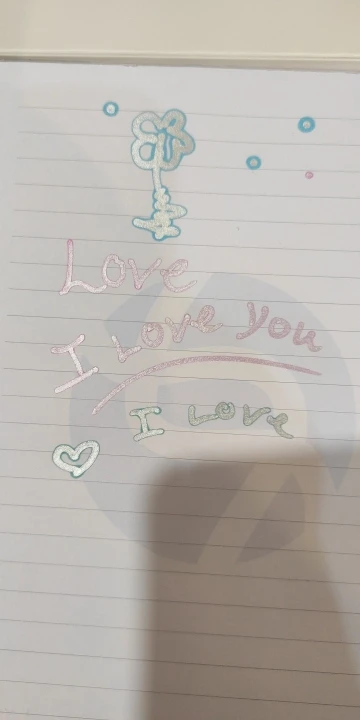 Love
I Love You
I Love